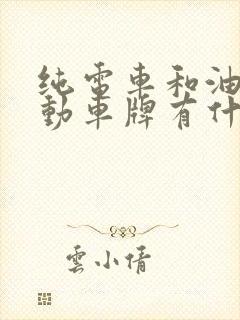 纯電車和油
動車牌有什
雲小倩